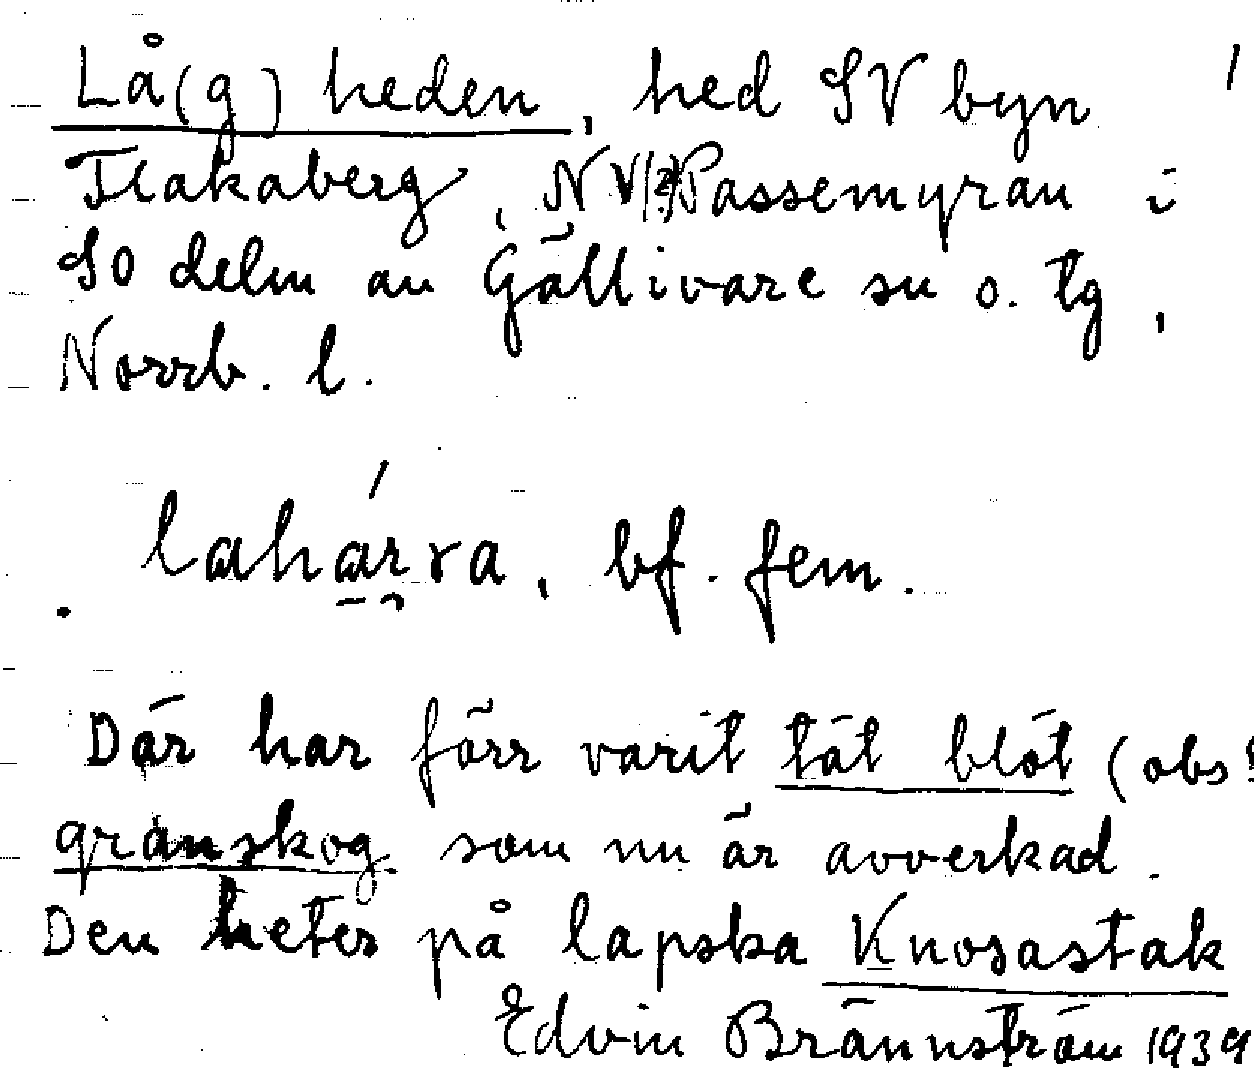 Lå(g)heden, hed SV byn
Flakaberg, NV(?)Passemyran i
SO deln av Gällivare sn o. tg,
Norrb. l.
bf. fem.
Där har förr varit tät blöt (obs!
granskog som nu är avverkad.
Den heter på lapska Knosastak
Edvin Brännström 1939